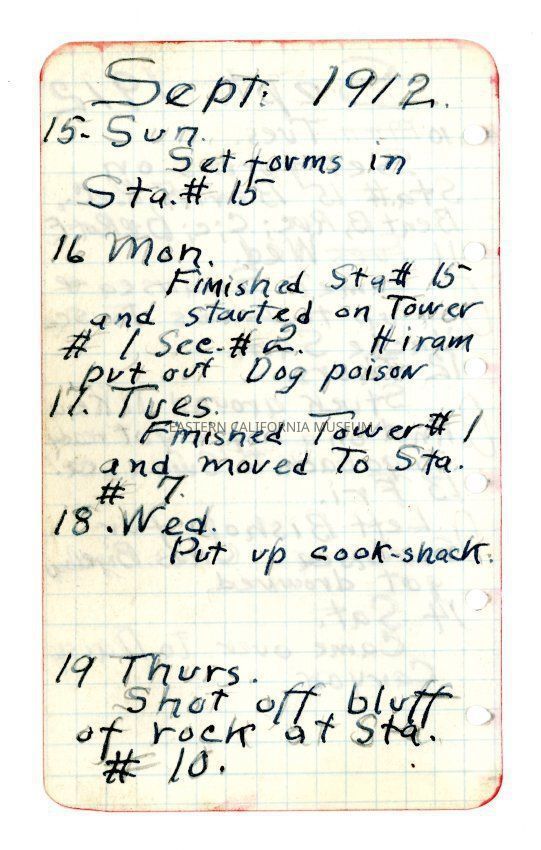 Sept. 1912.
15- Sun.
Set forms in
Sta. # 15
16 Mon.
Finished Sta # 15
and started on Tower
# 1 Sec. # 2. Hiram
put out Dog poison
17. Tues.
EASTERN CALIFORNIA MUSEUM
Finished Tower # 1
and moved To Sta.
# 7.
18. Wed.
Put up cook-shack.
19 Thurs.
Shot off bluff
of rock at Sta.
# 10.